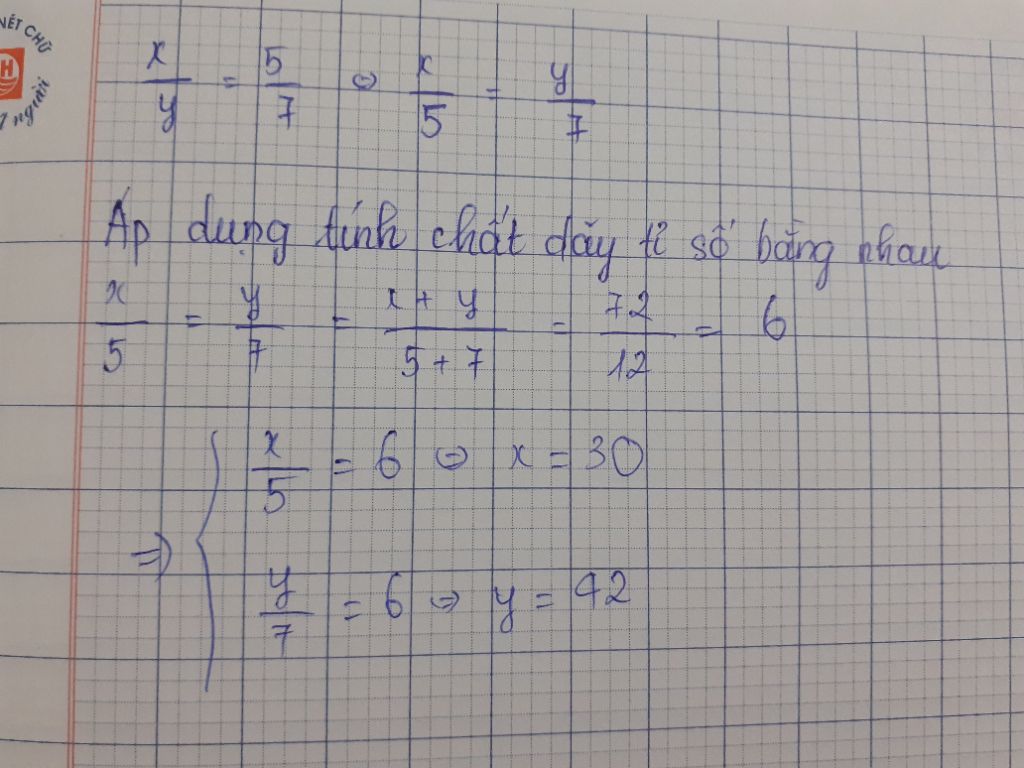 NÉT CHỮ
H
người
x/y = 5/7 ⇔ x/5 = y/7
Áp dụng tính chất dãy tỉ số bằng nhau
x/5 = y/7 = x + y / 5 + 7 = 72/12 = 6
⇒ { x/5 = 6 ⇔ x = 30
y/7 = 6 ⇔ y = 42